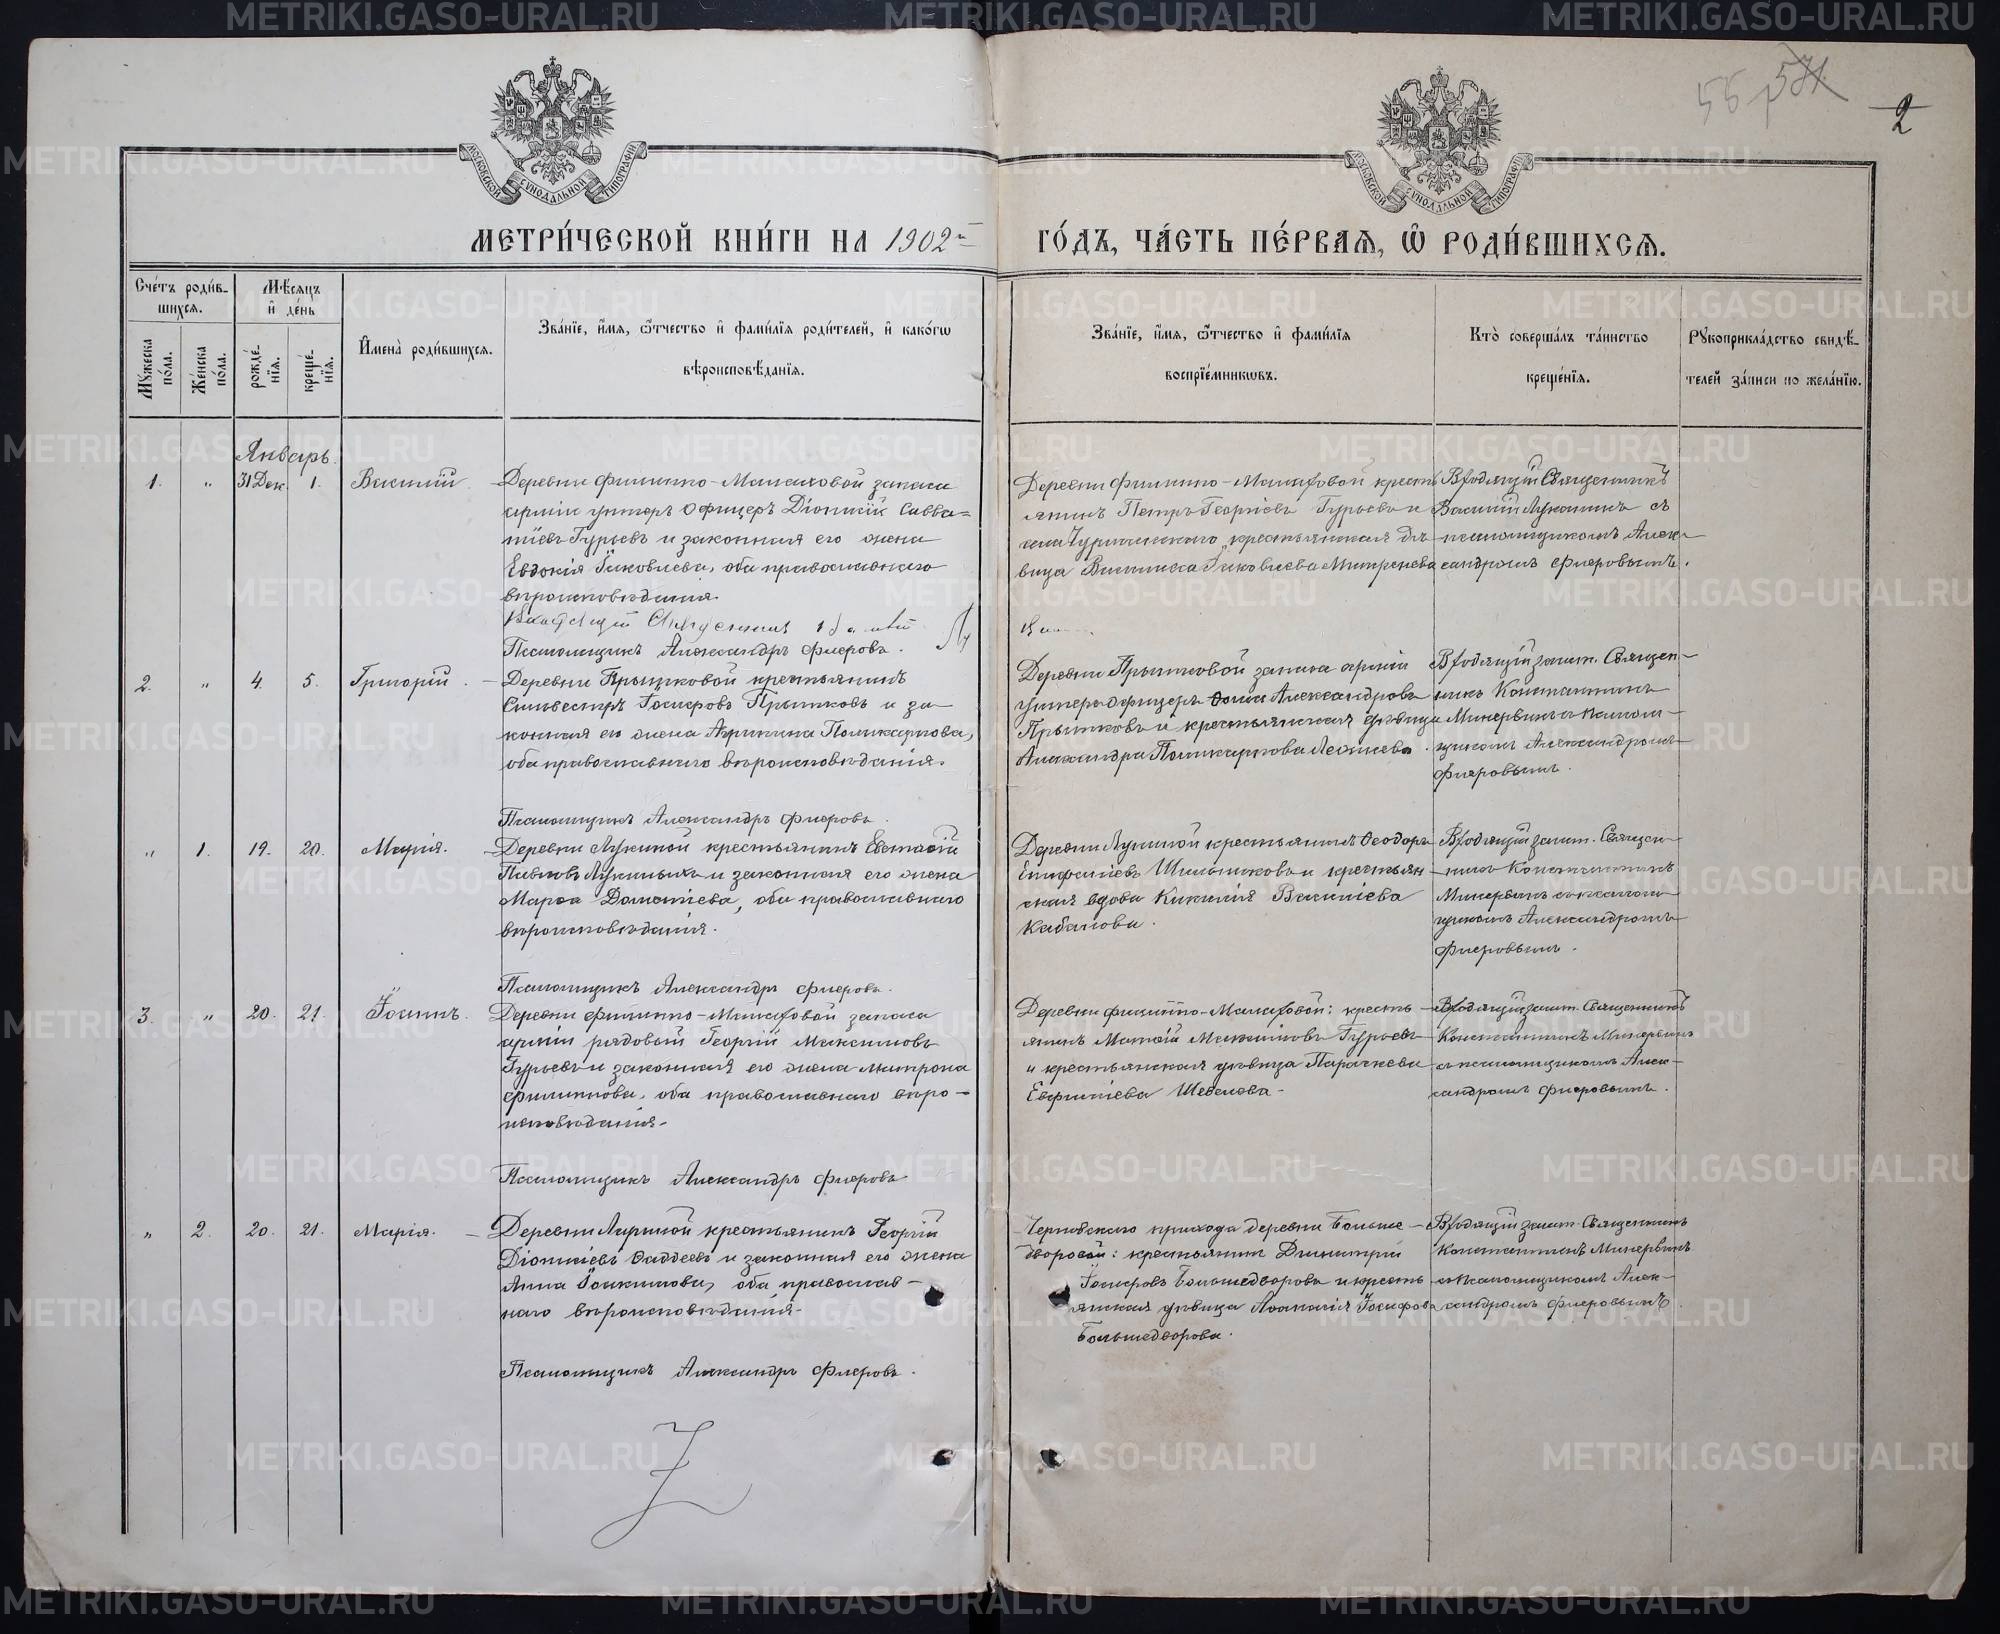 55 571
2
МОСКОВСКОЙ СѴНОДАЛЬНОЙ ТИПОГРАФІИ
МОСКОВСКОЙ СѴНОДАЛЬНОЙ ТИПОГРАФІИ
МЕТРИ́ЧЕСКОЙ КНИ́ГИ НА 1902й ГО́ДЪ, ЧА́СТЬ ПЕ́РВАЯ, Ѽ РОДИ́ВШИХСЯ.
Сче́тъ роди́в-
шихся.
Мѣ́сяцъ
и҆ де́нь
Мꙋ́жеска по́ла.
Же́нска по́ла.
рожде́нїя.
креще́нїя.
И҆мена̀ роди́вшихся.
Зва́нїе, и҆́мя, ѻ҆́тчество и҆ фами́лїя роди́телей, и҆ како́гѡ
вѣроисповѣ́данїя.
Зва́нїе, и҆́мя, ѻ҆́тчество и҆ фами́лїя
воспрїе́мникѡвъ.
Кто̀ соверша́лъ та́инство
креще́нїя.
Рꙋкоприкла́дство свидѣ́-
телей за́писи по жела́нїю.
Январь.
1. " 31 Дек. 1. Василій
Деревни Филиппо-Малаховой запаса
арміи унтеръ офицеръ Діонисій Савва-
тіевъ Гурьевъ и законная его жена
Евдокія Іаковлева, оба православнаго
вѣроисповѣданія.
Псаломщикъ Александръ Флеровъ.
Деревни Филиппо-Малаховой кресть
янинъ Петръ Георгіевъ Гурьевъ и
села крестьянская дѣ-
вица Василиса Іаковлева
Входящій Священникъ
Василій Луканинъ съ
псаломщикомъ Алек-
сандромъ Флеровымъ.
2. " 4. 5. Григорій.
Деревни Прытковой крестьянинъ
Сильвестръ Іосифовъ Прытковъ и за-
конная его жена Агрипина Поликарпова,
оба православнаго вѣроисповѣданія.
Псаломщикъ Александръ Флеровъ.
Деревни Прытковой запаса арміи
унтеръ офицеръ Ѳома Александровъ
Прытковъ и крестьянская дѣвица
Александра Поликарпова
Входящій зашт. Священ-
никъ Константинъ
Минервинъ съ псалом-
щикомъ Александромъ
Флеровымъ.
" 1. 19. 20. Марія.
Деревни Лукиной крестьянинъ Евстаѳій
Павловъ Лукиныхъ и законная его жена
Марѳа Дометіева, оба православнаго
вѣроисповѣданія.
Псаломщикъ Александръ Флеровъ.
Деревни крестьянинъ Ѳеодоръ
Епифаніевъ и крестьян
ская вдова Кикилія Василіева
Кабакова.
Входящій зашт. Священ-
никъ Константинъ
Минервинъ съ псалом-
щикомъ Александромъ
Флеровымъ.
3. " 20. 21. Іоаннъ.
Деревни Филиппо-Малаховой запаса
арміи рядовый Георгій Максимовъ
Гурьевъ и законная его жена Матрона
Филиппова, оба православнаго вѣро-
исповѣданія.
Псаломщикъ Александръ Флеровъ
Деревни Филиппо-Малаховой: кресть
янинъ Матѳій Максимовъ Гурьевъ
и крестьянская дѣвица Параскева
Евфиміева
Входящій зашт. Священникъ
Константинъ Минервинъ
съ псаломщикомъ Алек-
сандромъ Флеровымъ.
" 2. 20. 21. Марія.
Деревни крестьянинъ Георгій
Діонисіевъ Ѳаддеевъ и законная его жена
Анна Іоакимова, оба православ-
наго вѣроисповѣданія.
Псаломщикъ Александръ Флеровъ.
Черновскаго прихода деревни Больше-
дворовой: крестьянинъ Димитрій
Іосифовъ Большедворовъ и кресть
янская дѣвица Аѳанасія Іосифова
Большедворова.
Входящій зашт. Священникъ
Константинъ Минервинъ
съ псаломщикомъ Алек-
сандромъ Флеровымъ.
METRIKI.GASO-URAL.RU